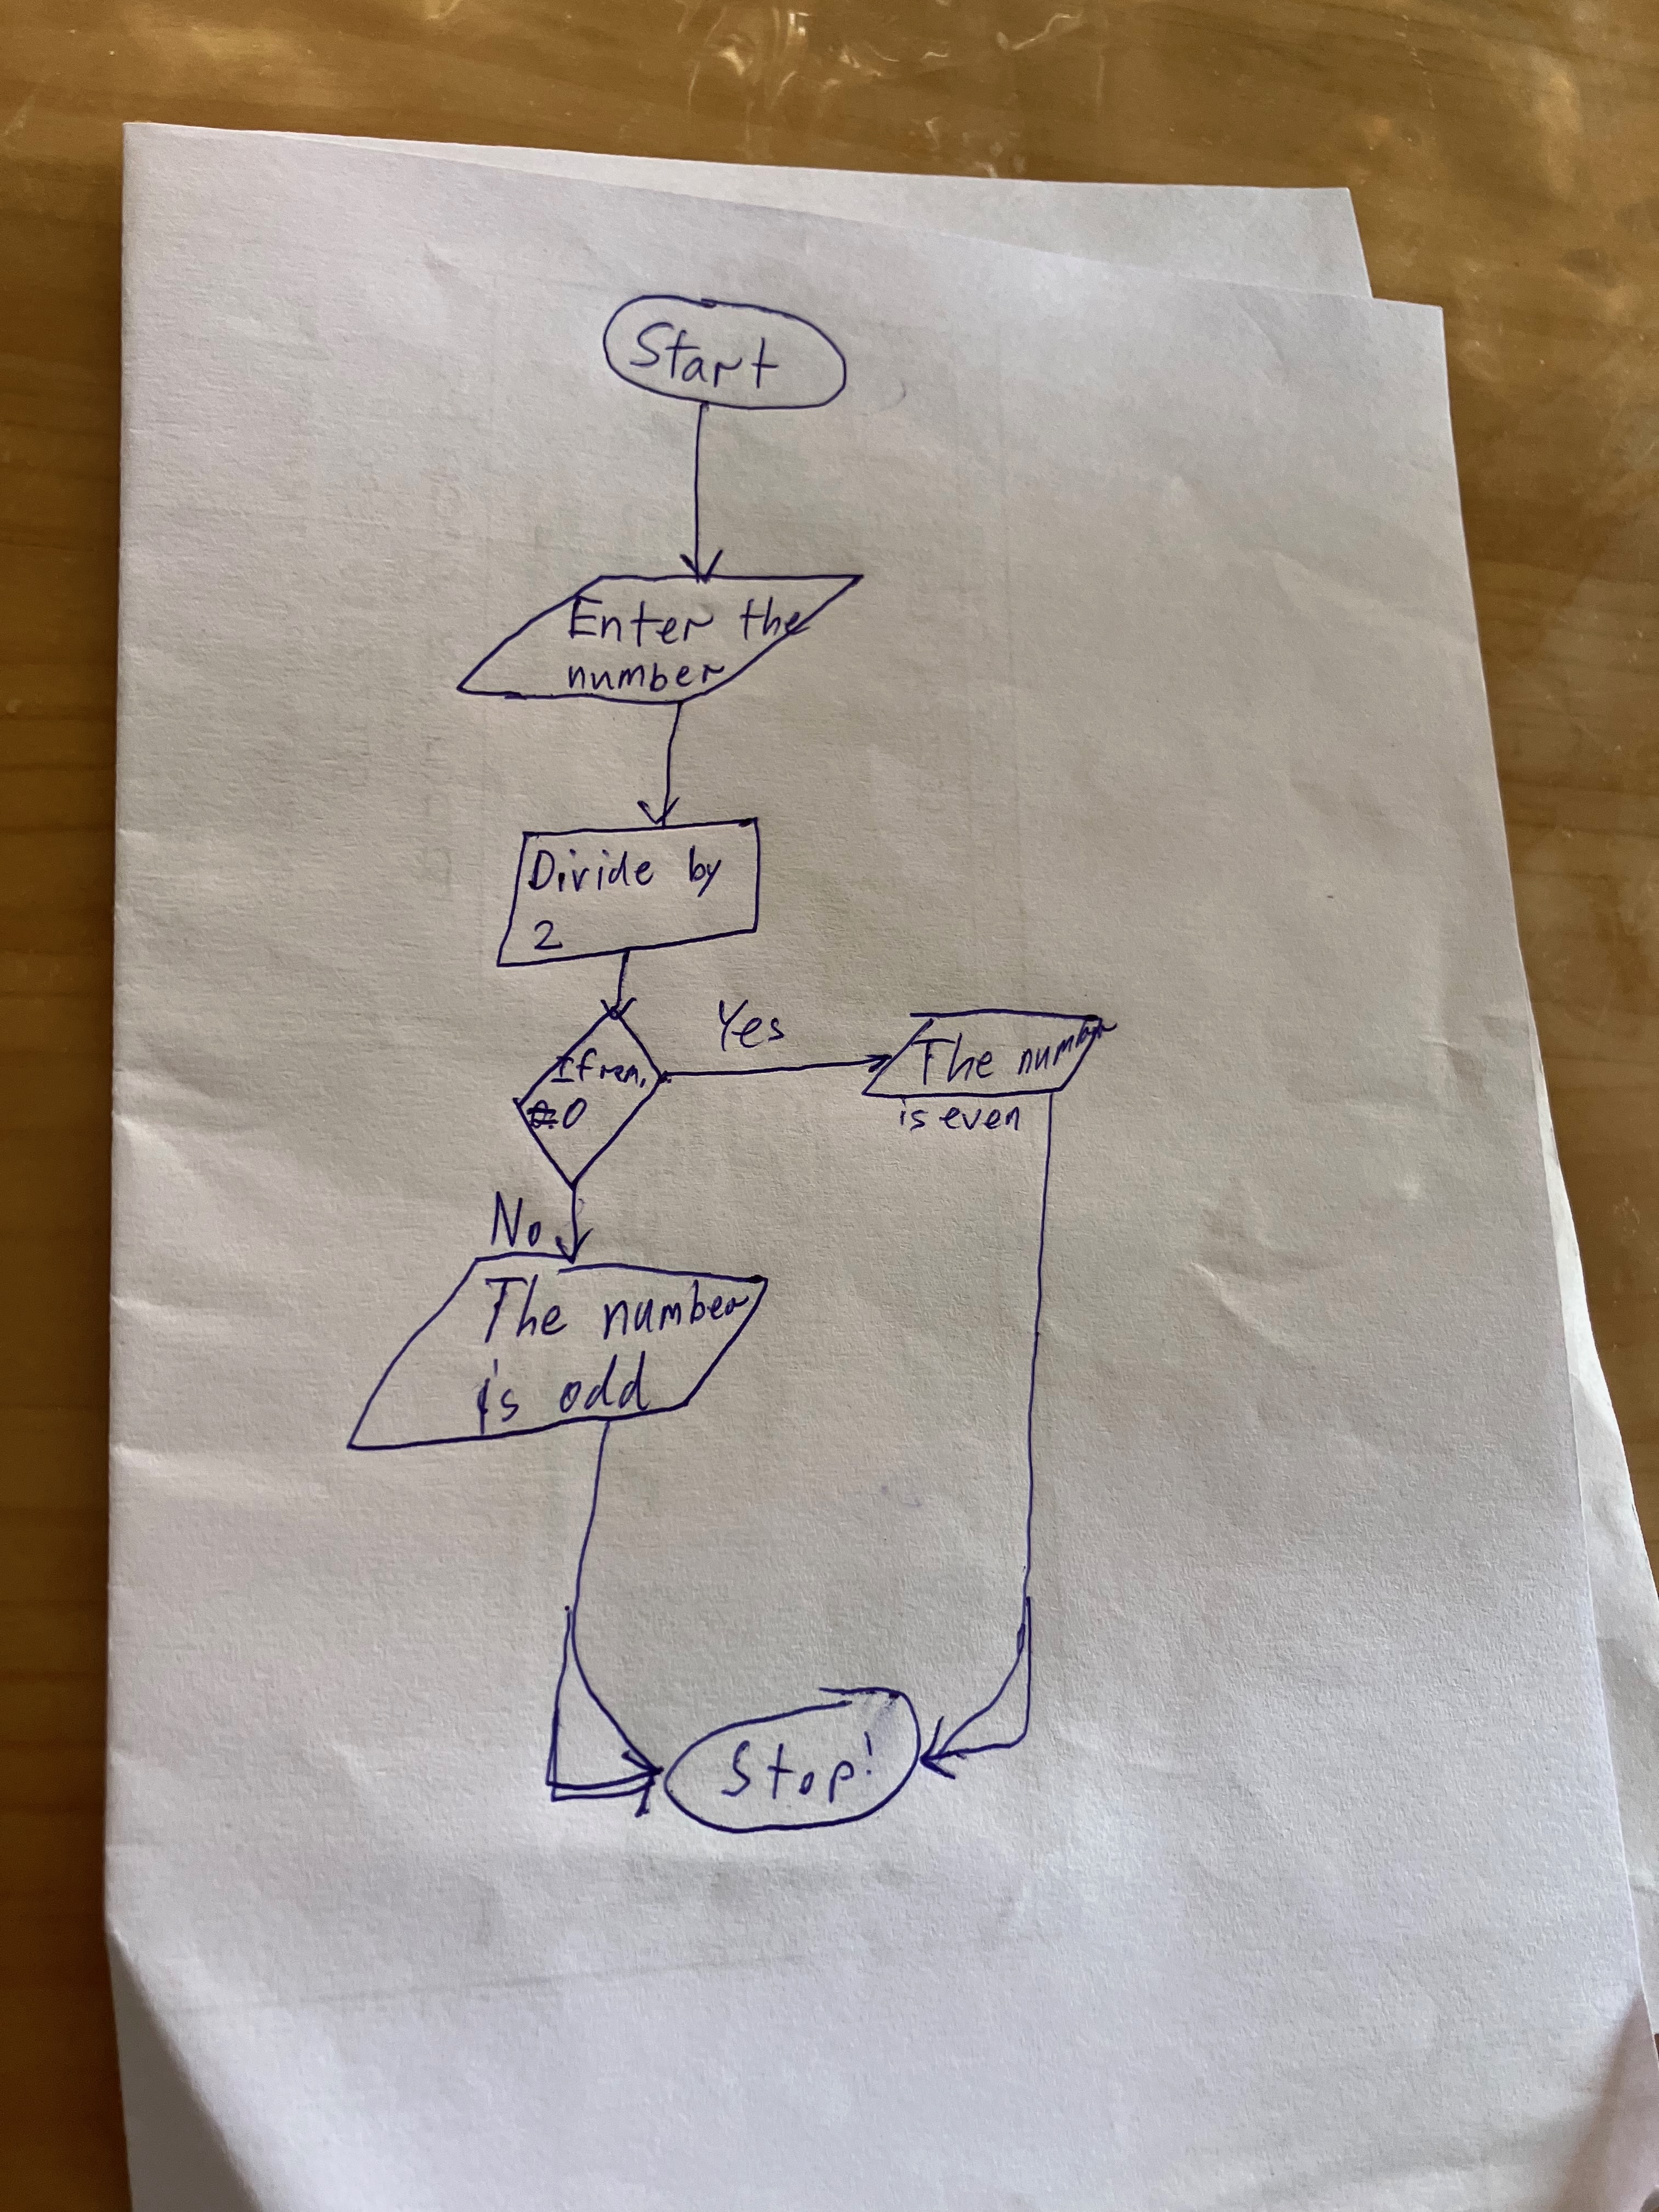 Start
Enter the
number
Divide by
2
If rem.
0
Yes
The number
is even
No
The number
is odd
Stop!